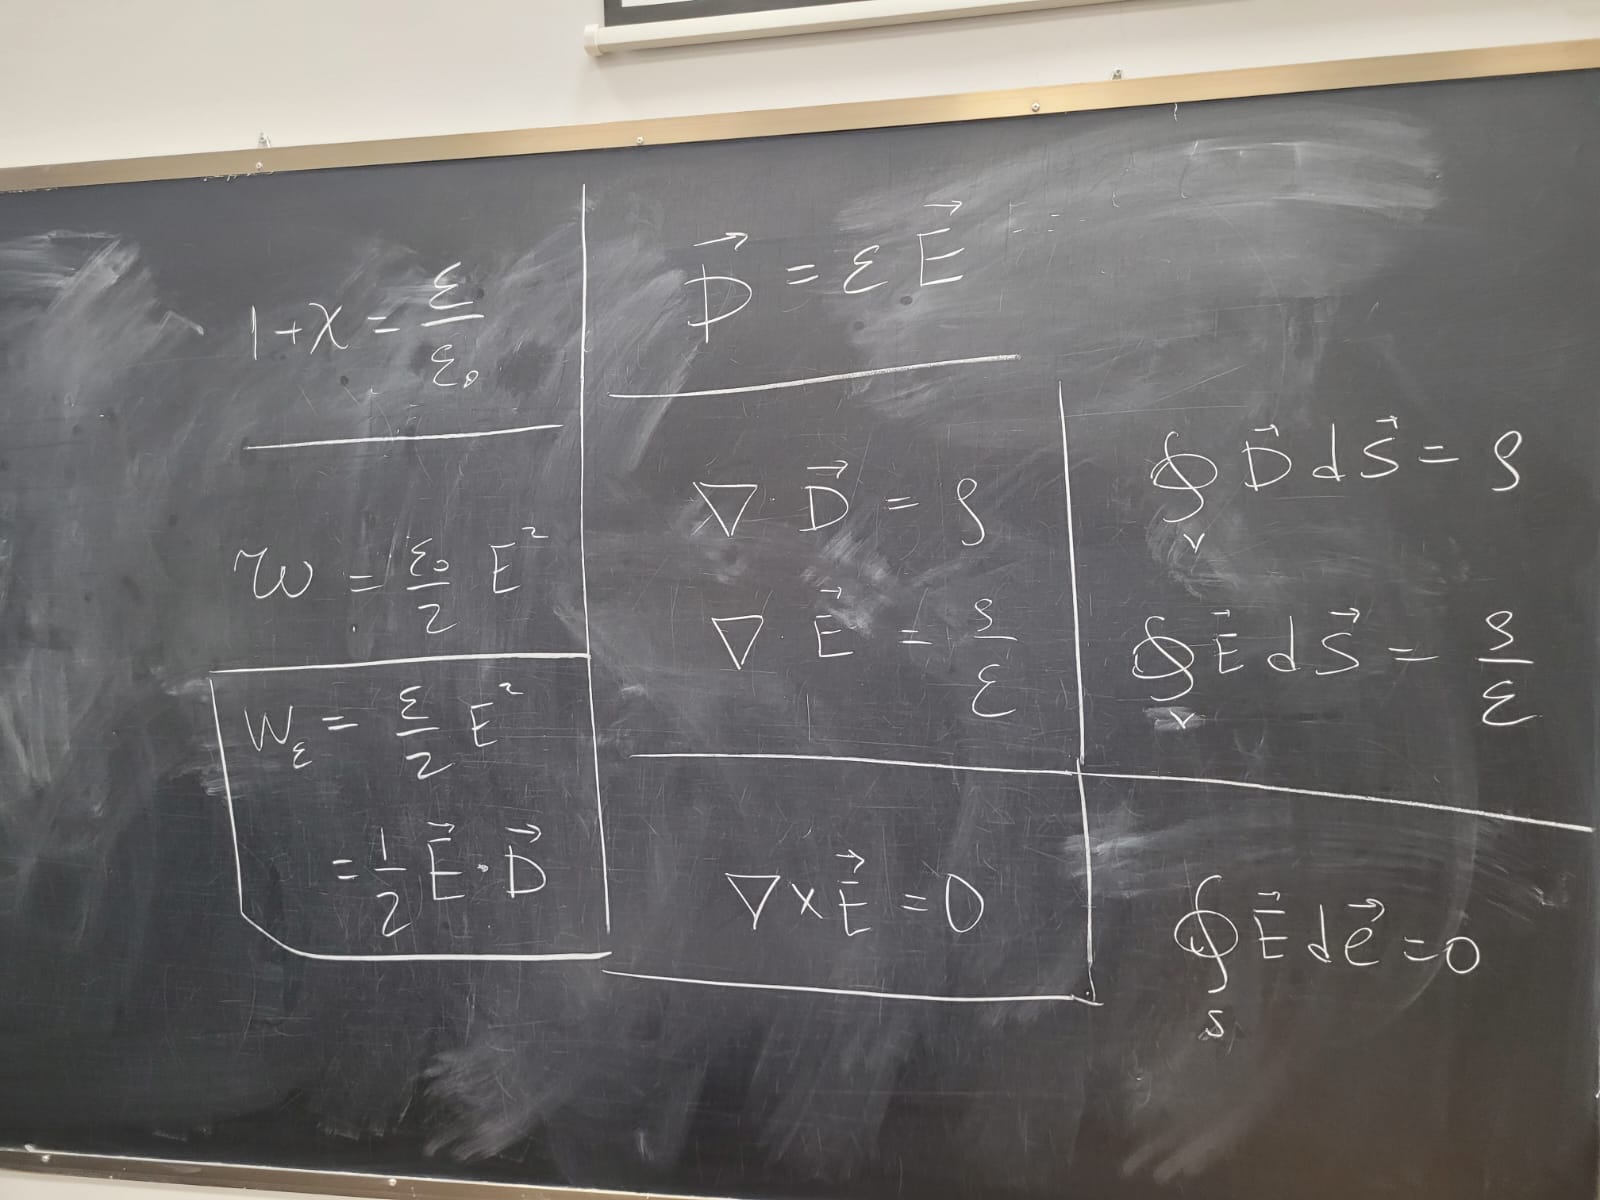 1+χ = ε/ε₀
w = ε₀/2 E²
W_ε = ε/2 E²
= 1/2 E⃗ · D⃗
D⃗ = ε E⃗
∇ · D⃗ = ρ
∇ · E⃗ = ρ/ε
∇ × E⃗ = 0
∮_V D⃗ dS⃗ = ρ
∮_V E⃗ dS⃗ = ρ/ε
∮_S E⃗ dℓ⃗ = 0